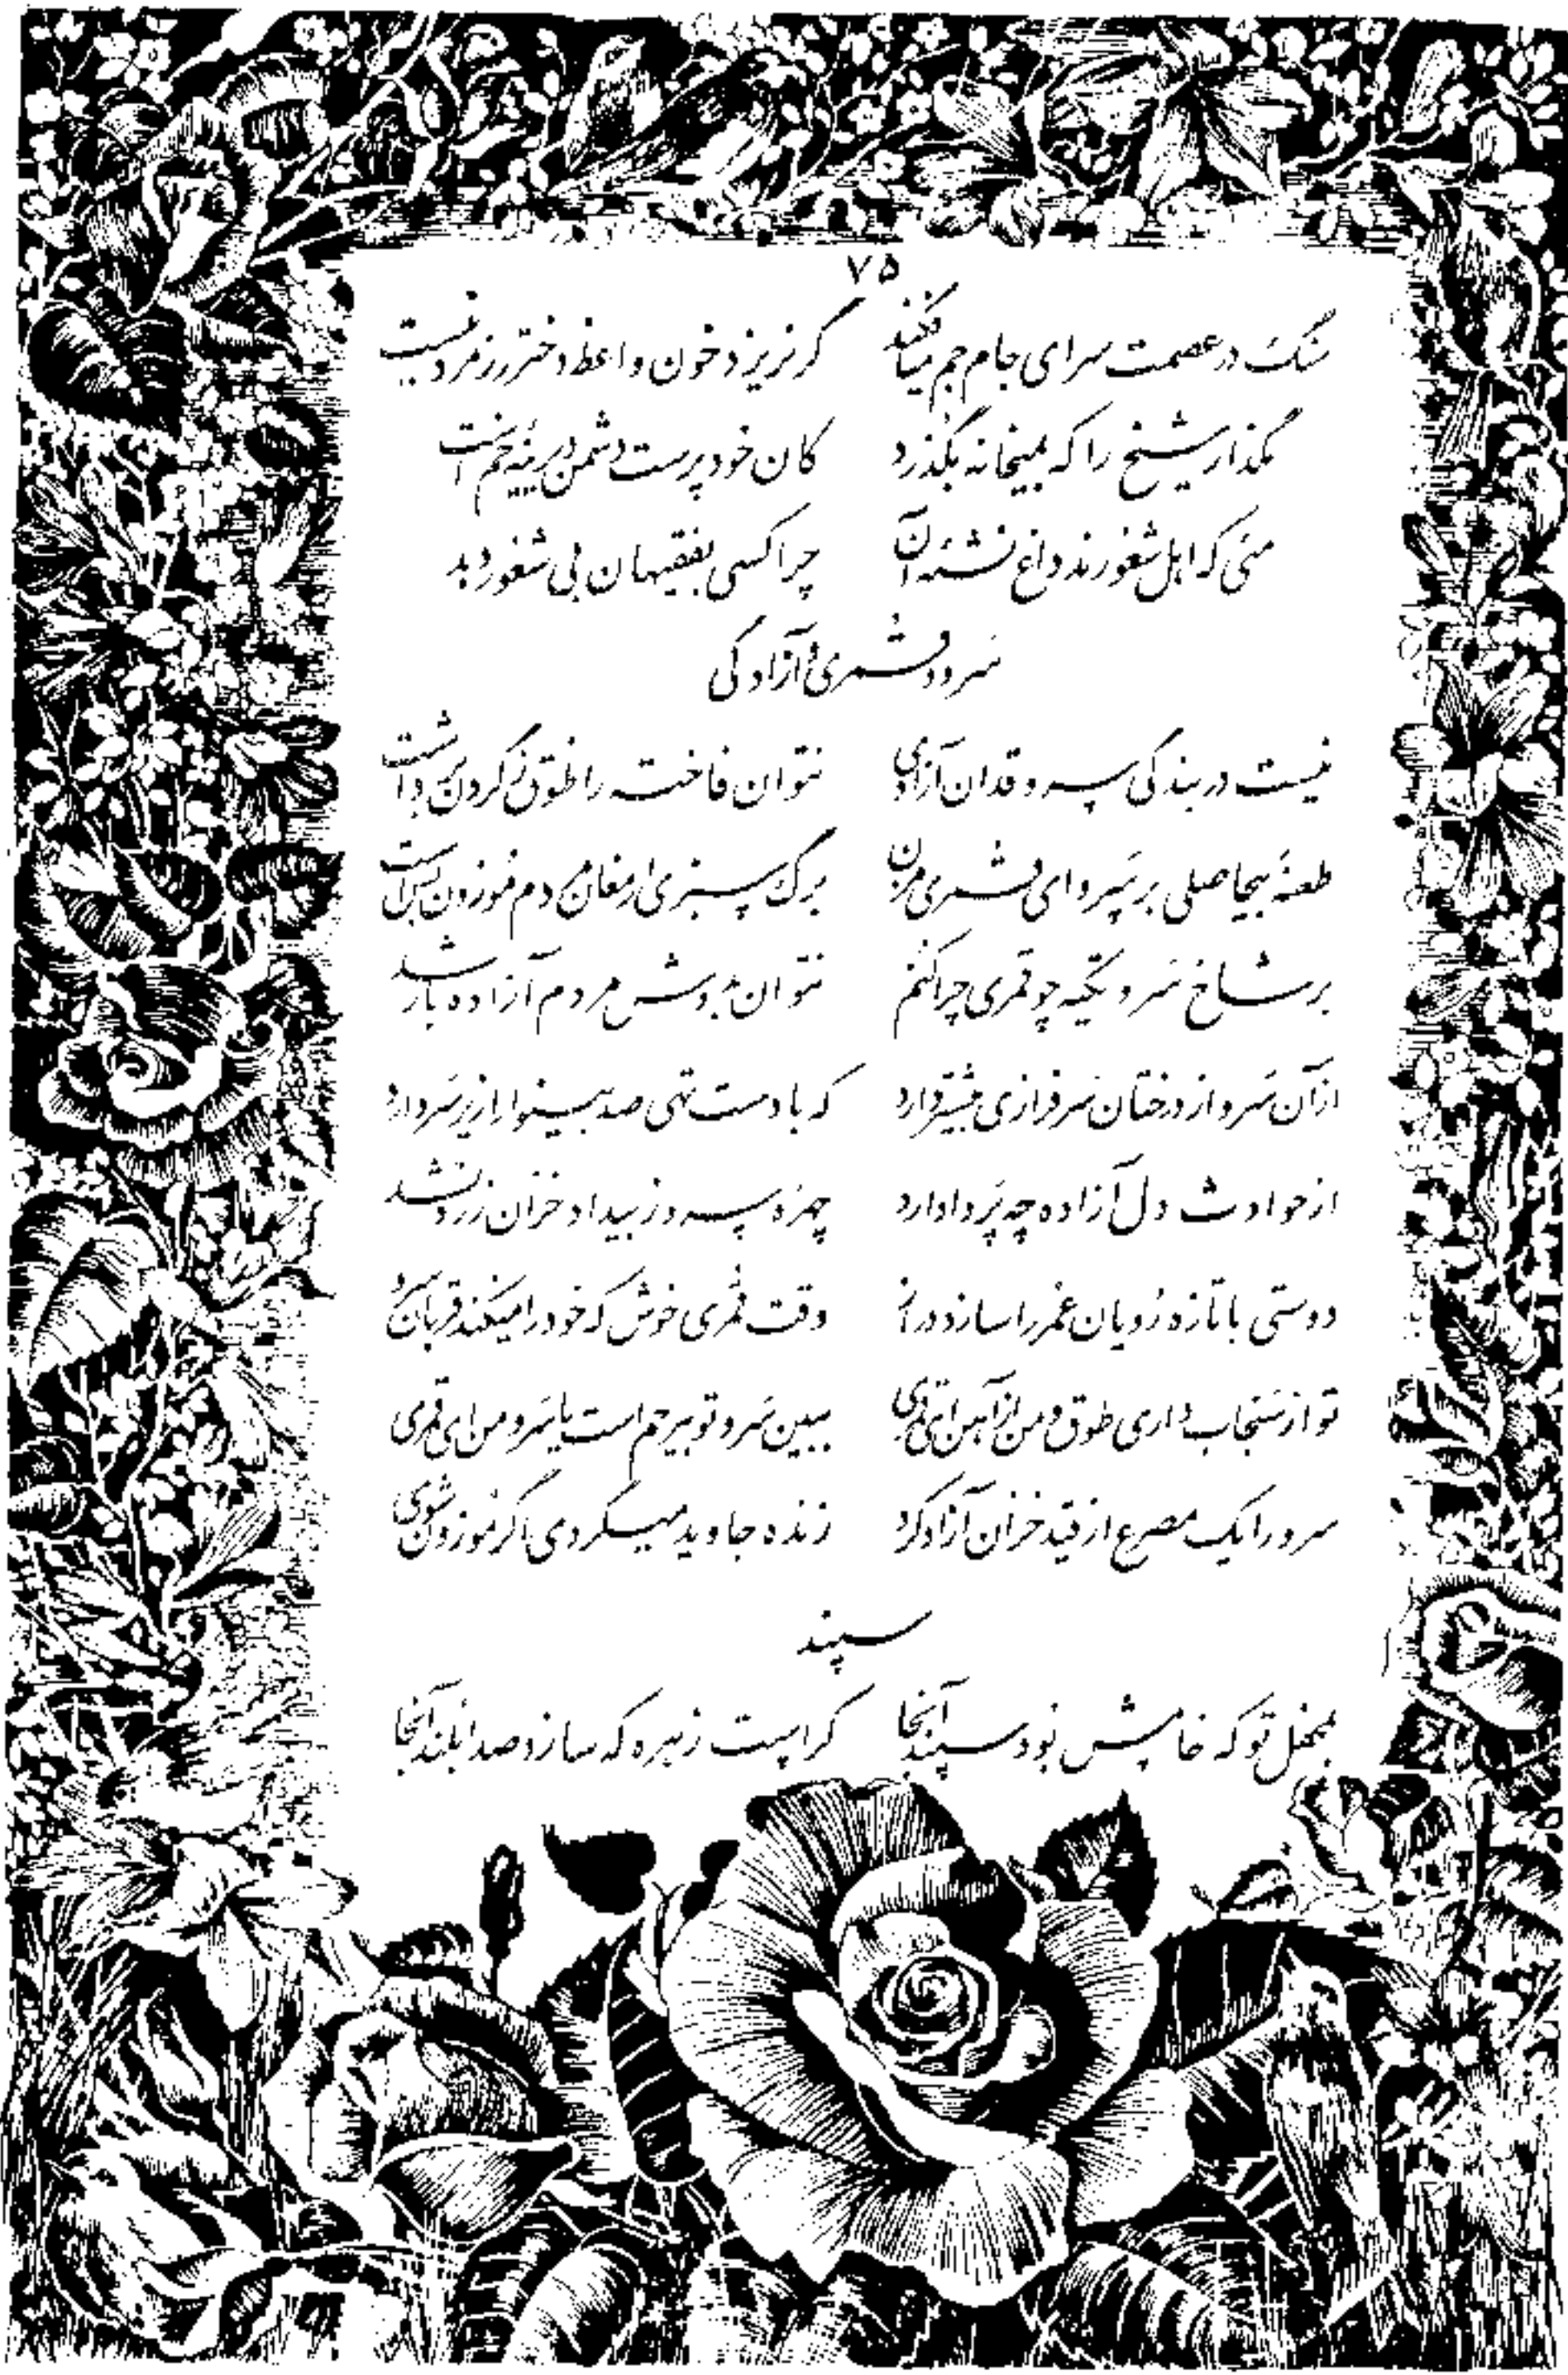 ۷۵
سنگ در عصمت سرای جام جم میافکند گر نریزد خون واعظ دختر رز مرد نیست
مگذار شیخ را که بمیخانه بگذرد کان خودپرست دشمن دیرینهٔ خم است
مئی که اهل شعورند داغ نشئه آن چرا کسی بفقیهان بی شعور دهد
سرو و قمری و آزادگی
نیست در بندگی سرو قدان آزادی نتوان فاخته را طوق ز گردن برداشت
طعنه بیحاصلی بر سرو ای قمری مزن برگ سبزی ارمغان مردم موزون بس است
بر شاخ سرو تکیه چو قمری چرا کنم نتوان بدوش مردم آزاده بار شد
از آن سرو از درختان سرفرازی بیشتر دارد که با دست تهی صد بینوا را زیر سر دارد
از حوادث دل آزاده چه پروا دارد چهره سرو ز بیداد خزان زرد نشد
دوستی با تازه رویان عمر را سازد دراز وقت قمری خوش که خود را میکند قربان سرو
تو از سنجاب داری طوق و من از آهن ای قمری ببین سرو تو بیرحم است یا سرو من ای قمری
سرو را یک مصرع از قید خزان آزاد کرد زنده جاوید میگردی اگر موزون شوی
سپند
بمحفل تو که خامش بود سپند آنجا کراست زهره که سازد صدا بلند آنجا